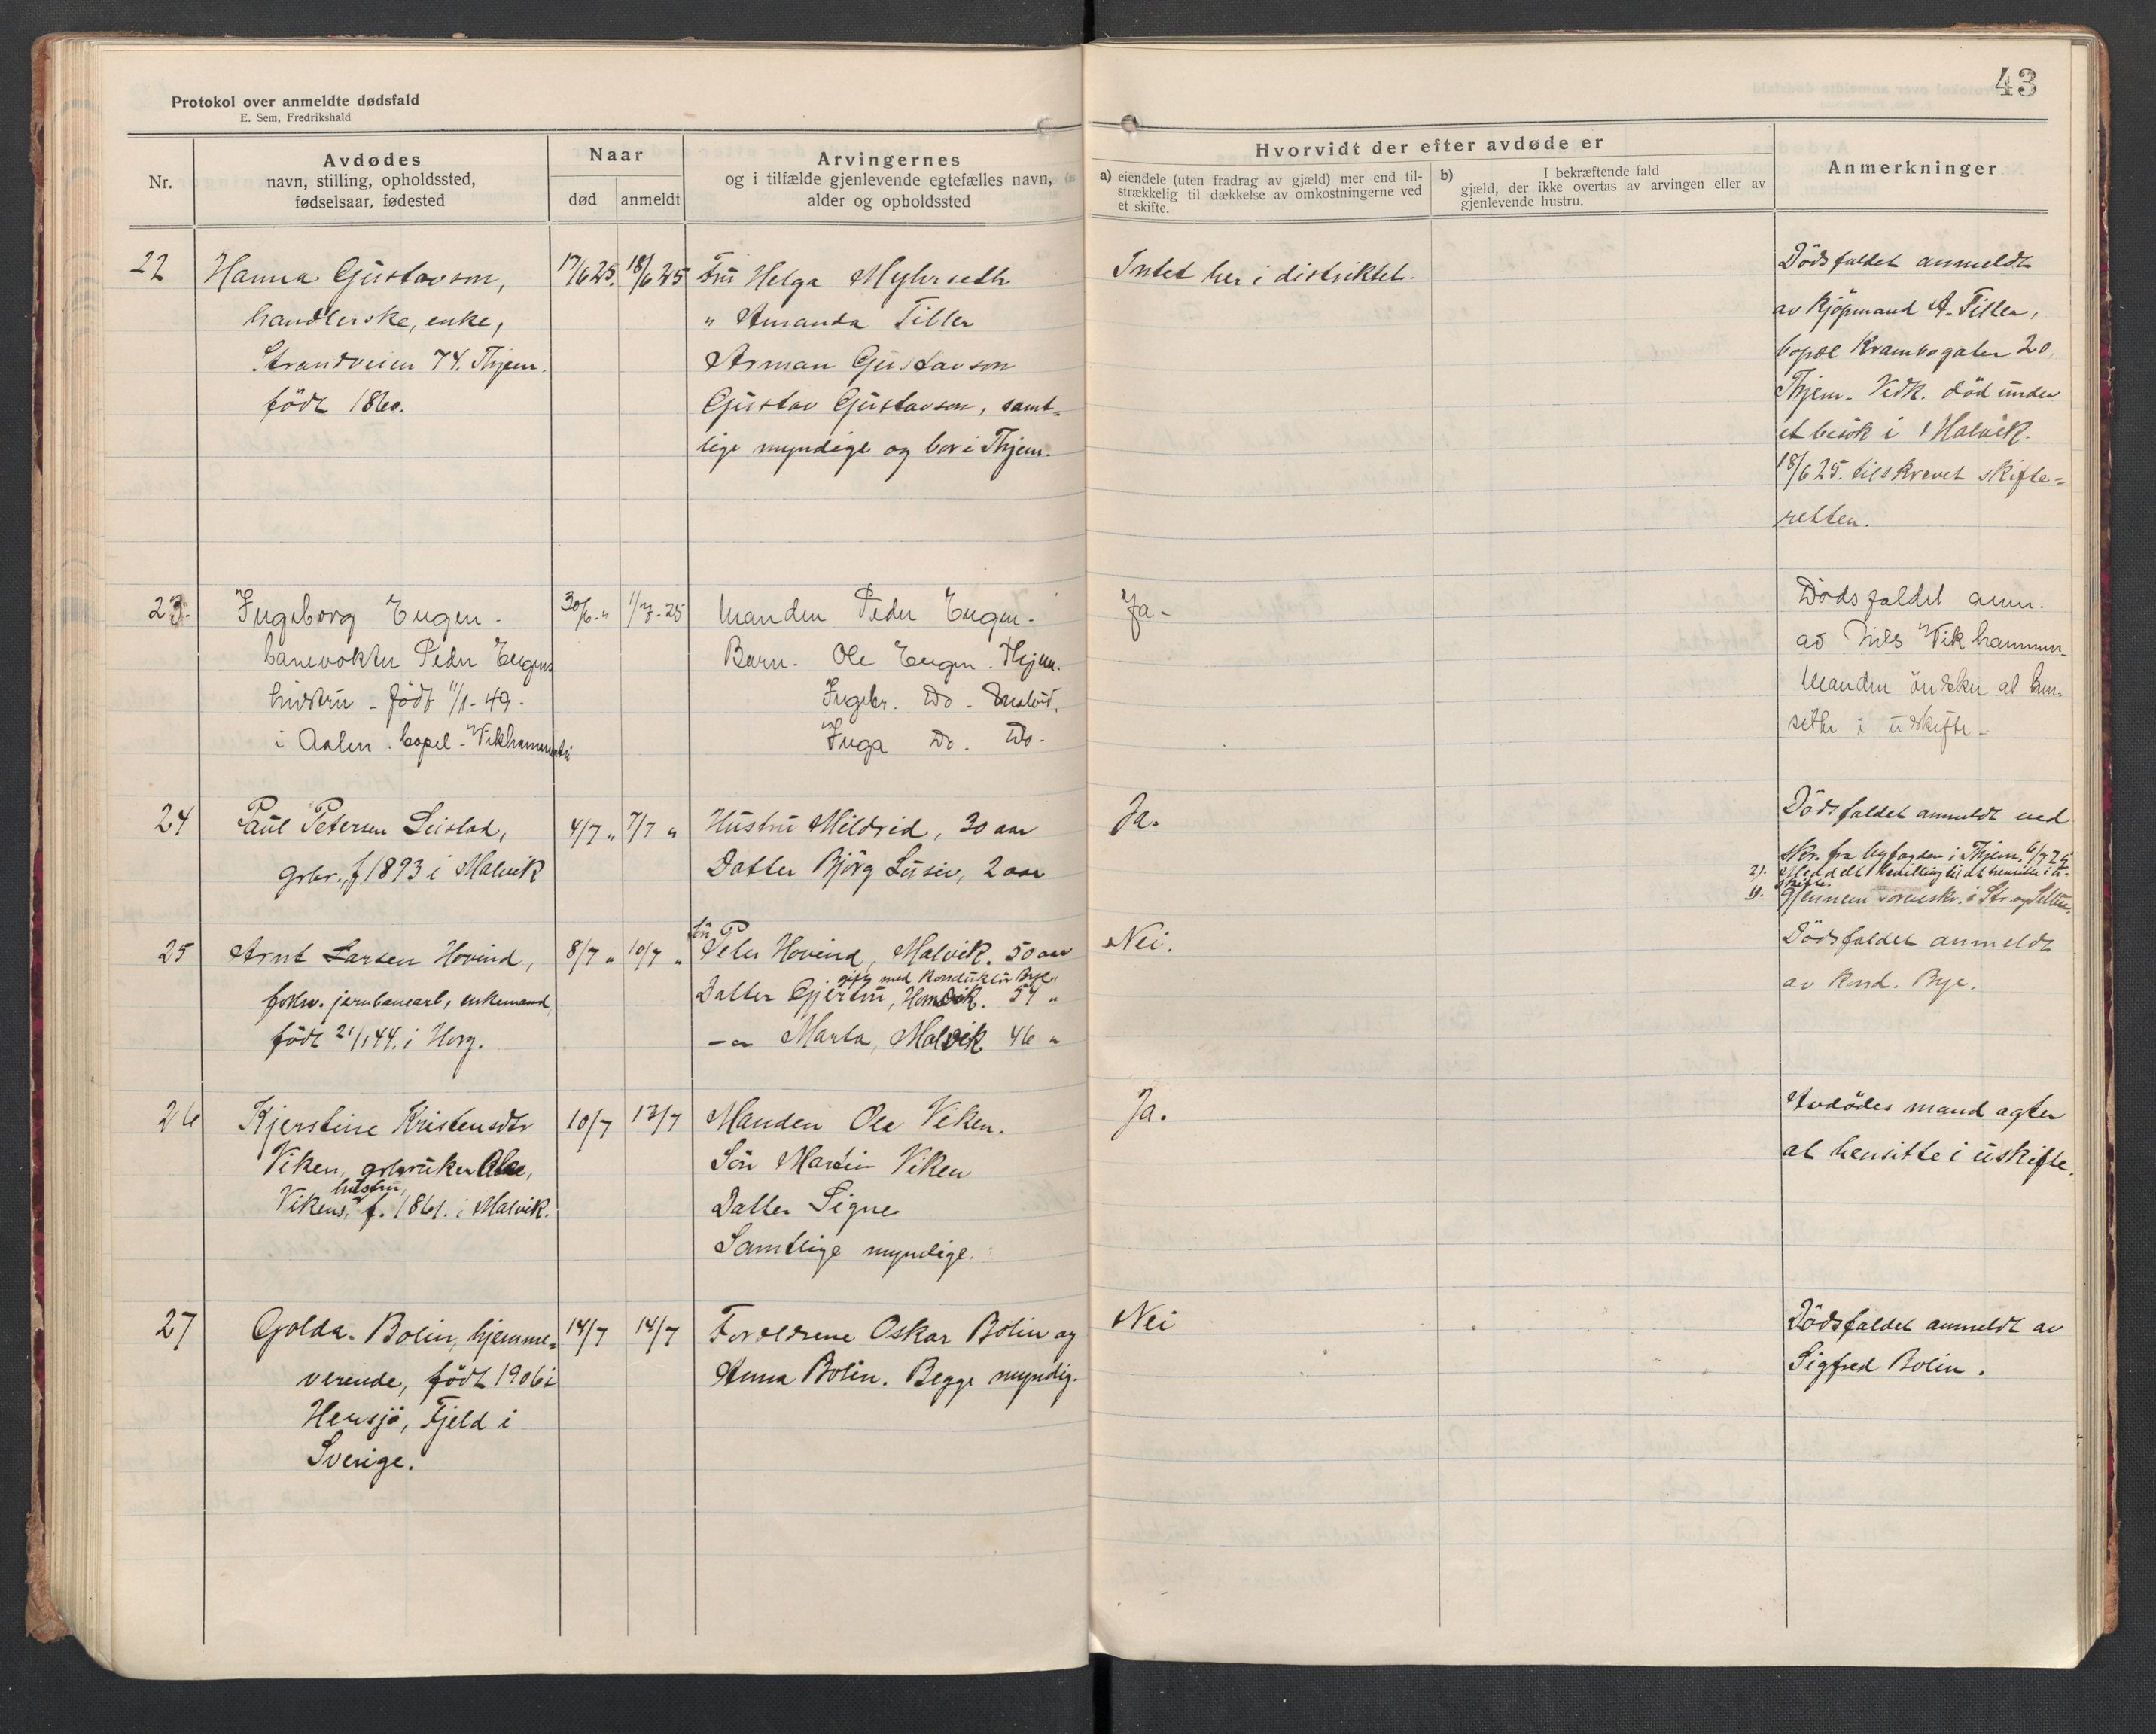 43
Protokol over anmeldte dødsfald
E. Sem, Fredrikshald
Nr.
Avdødes
navn, stilling, opholdssted,
fødselsaar, fødested
Naar
død
anmeldt
Arvingernes
og i tilfælde gjenlevende egtefælles navn,
alder og opholdssted
Hvorvidt der efter avdøde er
a) eiendele (uten fradrag av gjæld) mer end til-
strækkelig til dækkelse av omkostningerne ved
et skifte.
b) I bekræftende fald
gjæld, der ikke overtas av arvingen eller av
gjenlevende hustru.
Anmerkninger
22
Hanna Gustavson,
handlerske, enke,
Strandveien 74. Thjem.
född 1860.
17/6 25.
18/6 25
Fru Helga Myhrseth
" Amanda Tiller
Arman Gustavson
Gustav Gustavson, samt-
lige myndige og bor i Thjem.
Intet her i distriktet.
Dödsfaldet anmeldt
av kjöpmand A. Tiller,
bopæl Krambogaten 20,
Thjem. Vedk. död under
et besök i Malvik.
18/6 25. tilskrevet skifte-
retten.
23.
Ingeborg Eugen -
banevokter Peder Eugens
hustru - född 11/1-49.
i Aalen. bopel -
30/6 - "
1/7 - 25
Manden Peder Eugen.
Barn. Ole Eugen. Thjem.
Ingebr. Do - Malvik.
Inga Do. Do.
Ja -
Dödsfaldet anm.
av Nils Vikhammer-
Manden önsker at hen-
sitte i uskifte -
24
Paul Petersen Leistad,
grbr., f 1893 i Malvik
4/7 "
7/7 "
Hustru Mildrid, 30 aar
Datter Björg Lusiv, 2 aar
Ja.
Dödsfaldet anmeldt ved
skr. fra byfogden i Thjem. 6/7 25
2). Meddelt bevilling til at hensitte i u-
skifte.
1). Gjennem sorenskr. i Str. og Selbu
25
Arnt Larsen Hovind,
forhv. jernbanearb, enkemand,
född 21/1 44. i Horg.
8/7 "
10/7 "
Sön
Peter Hovind, Malvik. 50 aar
gift med konduktör Bye
Datter Gjertru, Hommelvik. 54 "
- " Marta, Malvik 46 "
Nei.
Dödsfaldet anmeldt
av kond. Bye.
26
Kjerstine Kristensdtr
Viken, grbruker Ole
hustru,
Vikens, f. 1861. i Malvik.
10/7
13/7
Manden Ole Viken.
Sön Martin Viken
Datter Signe
Samtlige myndige.
Ja.
Avdödes mand agter
at hensitte i uskifte.
27
Golda Bolin, hjemme-
verende, född 1906 i
Hensjö, Fjeld i
Sverige.
14/7
14/7
Foreldrene Oskar Bolin og
Anna Bolin. Begge myndig.
Nei
Dödsfaldet anmeldt av
Sigfred Bolin.